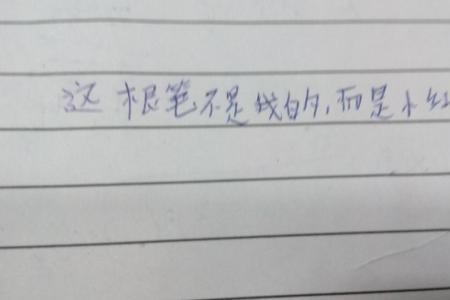 这根笔不是我的,而是小红